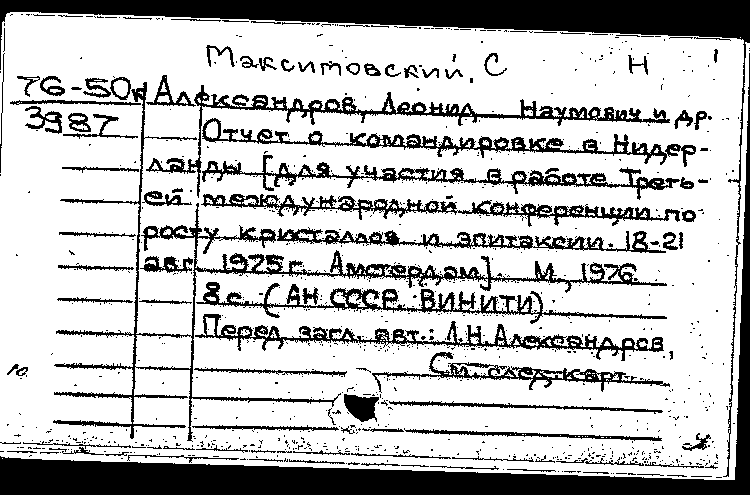 Максимовский, С Н 1
76-50к Александров, Леонид Наумович и др.
3987 Отчет о командировке в Нидер-
ланды [для участия в работе Треть-
ей международной конференции по
росту кристаллов и эпитаксии. 18-21
авг. 1975 г. Амстердам]. М., 1976.
8 с. (АН СССР. ВИНИТИ).
Перед загл. авт.: Л.Н. Александров,
См. след. карт.